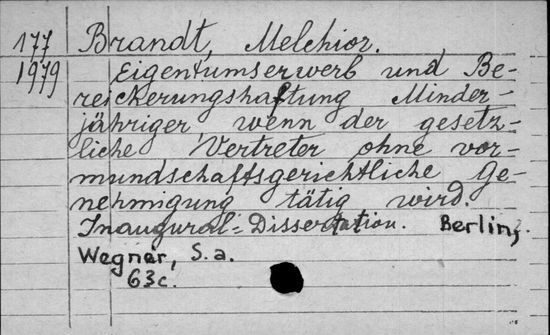 177 Brandt, Melchior.
1979 Eigentumserwerb und Be-
reickerungshaftung Minder-
jähriger, wenn der gesetz-
liche Vertreter ohne vor-
mundschaftsgerichtliche Ge-
nehmigung tätig wird.
Inaugural-Dissertation. Berlin,
Wegner, S.a.
63c.